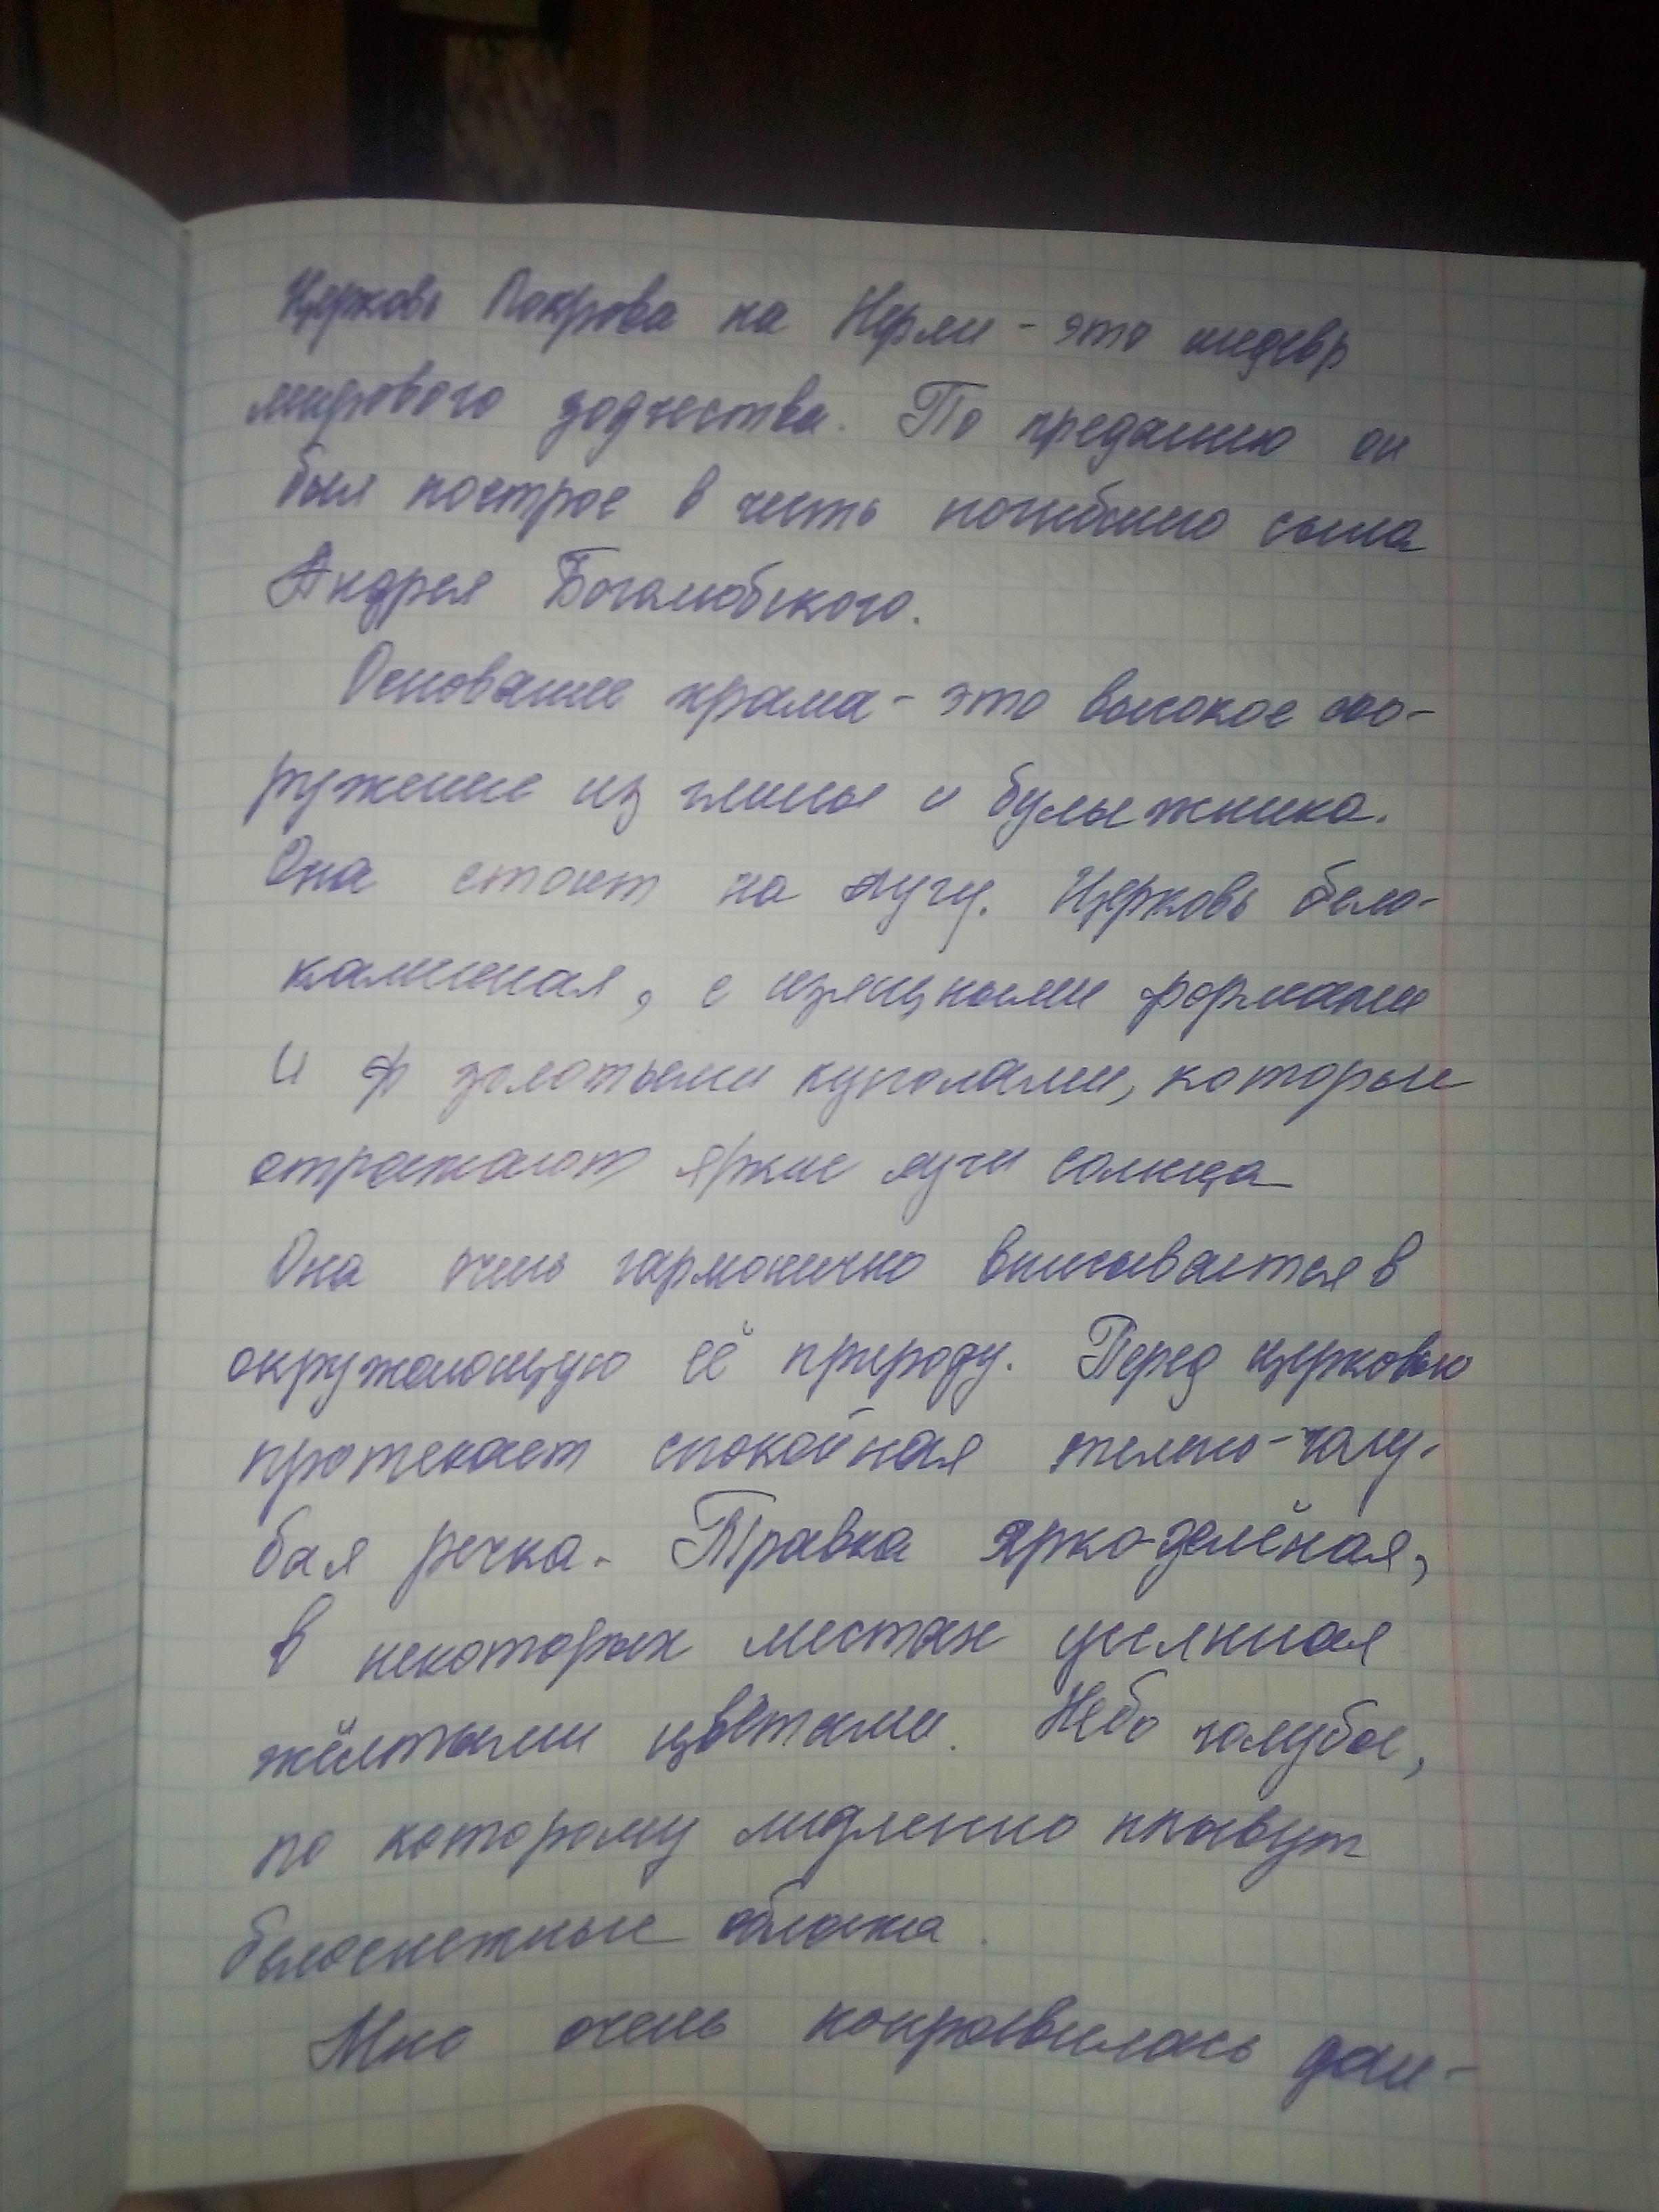 Церковь Покрова на Нерли - это шедевр
мирового зодчества. По преданию он
был построе в честь погибшего сына
Андрея Боголюбского.
Основание храма - это высокое соо-
ружение из глины и булыжника.
Она стоит на лугу. Церковь бело-
каменная, с изящными формами
и золотыми куполами, которые
отражают яркие лучи солнца
Она очень гармонично вписывается в
окружающую её природу. Перед церковью
протекает спокойная темно-голу-
бая речка. Травка ярко-зелёная,
в некоторых местах усеянная
жёлтыми цветами. Небо голубое,
по которому медленно плывут
белоснежные облака.
Мне очень понравилась дан-